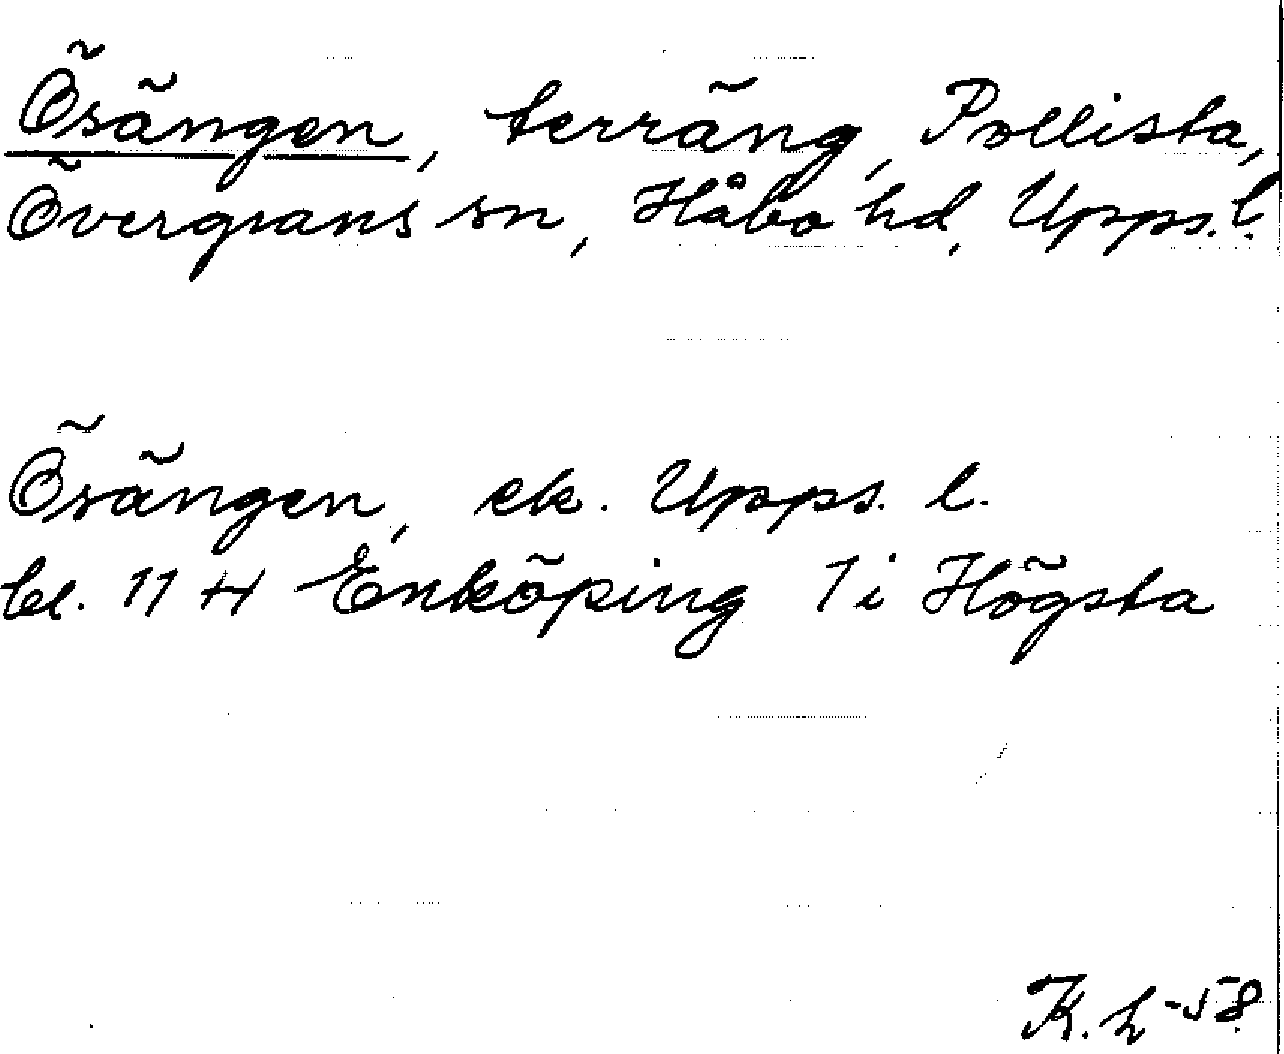 Ösängen, terräng, Pollista,
Övergrans sn, Håbo hd, Upps. l.
Ösängen, ek. Upps. l.
bl. 11 H Enköping 1 i Högsta
K. h -58